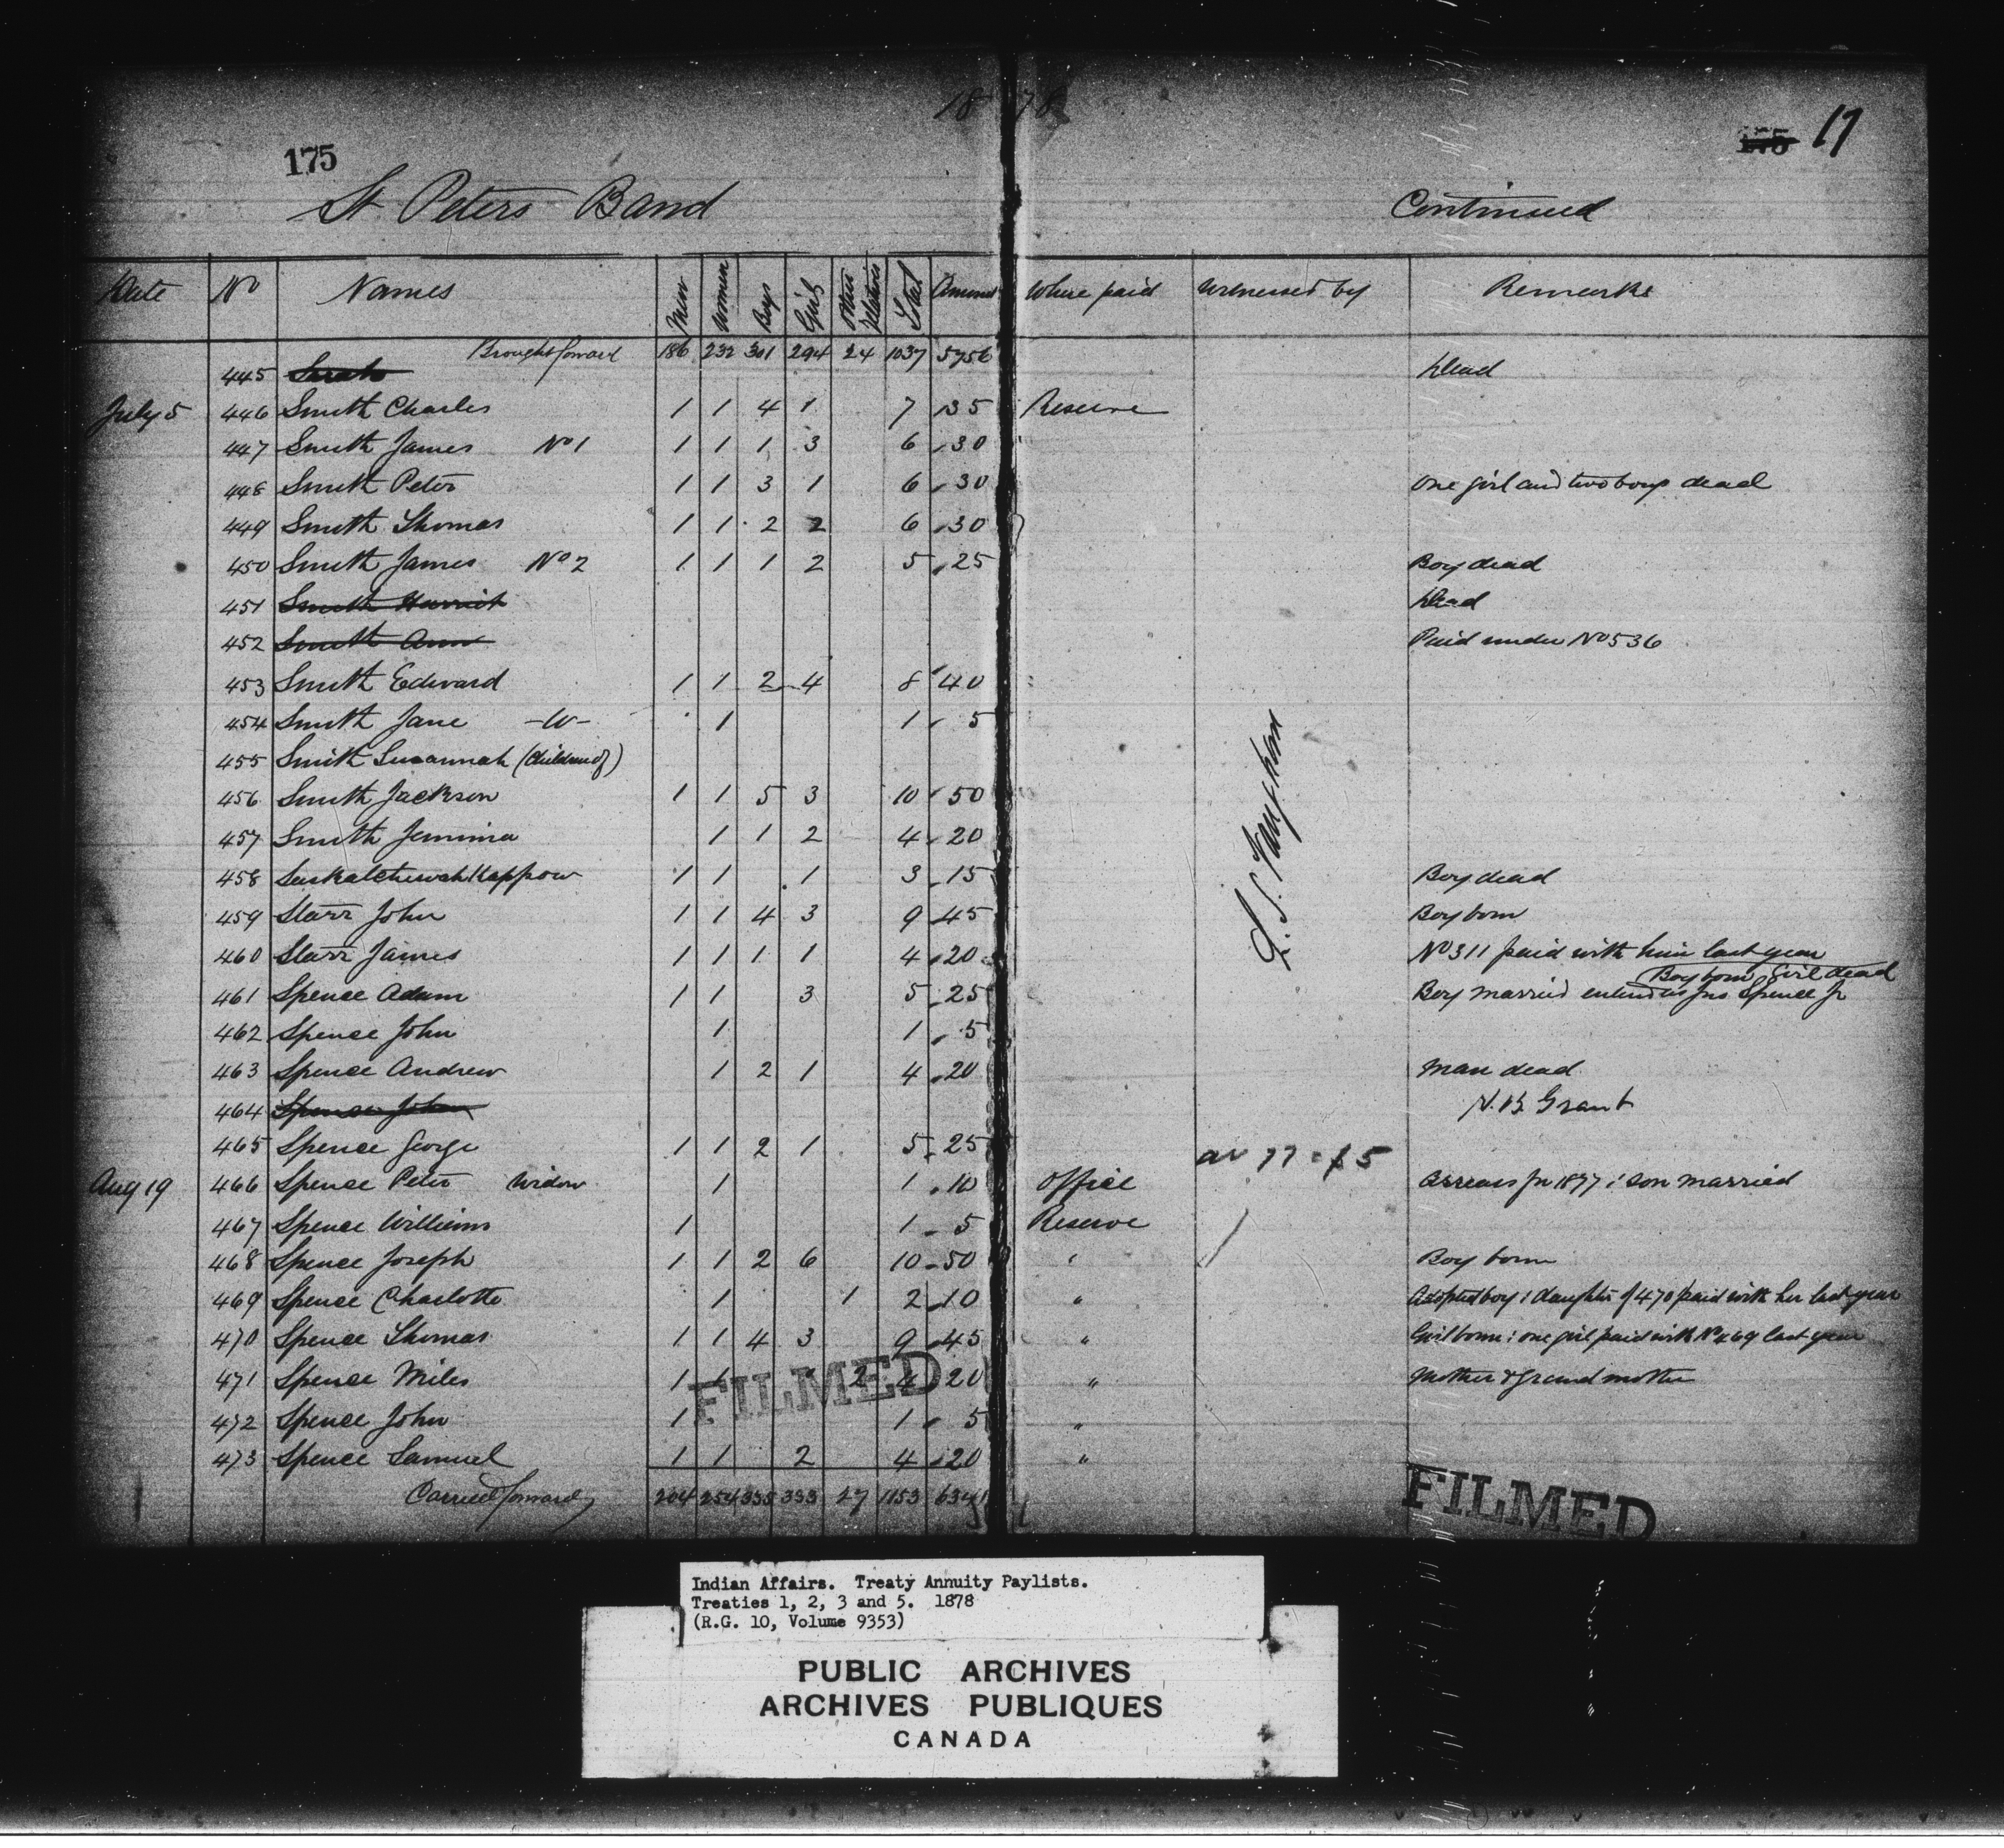 1878
175
175 17
St. Peters Band Continued
Date No Names Men Women Boys Girls Other Relatives Total Amount Where paid Witnessed by Remarks
Brought forward 186 232 301 294 24 1037 5756
445 Sarah Dead
July 5 446 Smith Charles 1 1 4 1 7 35 Reserve
447 Smith James No 1 1 1 1 3 6 30
448 Smith Peter 1 1 3 1 6 30 One girl and two boys dead
449 Smith Thomas 1 1 2 2 6 30
450 Smith James No 2 1 1 1 2 5 25 Boy dead
451 Smith Harriet Dead
452 Smith Ann Paid under No 536
453 Smith Edward 1 1 2 4 8 40
454 Smith Jane -W- 1 1 5
455 Smith Susannah (Children of)
456 Smith Jackson 1 1 5 3 10 50
457 Smith Jemima 1 1 2 4 20
458 1 1 1 3 15 Boy dead
459 Starr John 1 1 4 3 9 45 Boy born
460 Starr James 1 1 1 1 4 20 No 311 paid with him last year
Boy born, Girl dead
461 Spence Adam 1 1 3 5 25 Boy married entered as Jno Spence Jr
462 Spence John 1 1 5
463 Spence Andrew 1 2 1 4 20 Man dead
464 Spence John H.B. Grant
465 Spence George 1 1 2 1 5 25
ar 77 = $5
Aug 19 466 Spence Peter Widow 1 1 10 Office Arrears for 1877; son married
467 Spence William 1 1 5 Reserve
468 Spence Joseph 1 1 2 6 10 50 " Boy born
469 Spence Charlotte 1 1 2 10 " Adopted boy; daughter of 470 paid with her last year
470 Spence Thomas 1 1 4 3 9 45 " Girl born; one girl paid with No 469 last year
471 Spence Miles 1 1 2 4 20 " Mother & grand mother
472 Spence John 1 1 5 "
473 Spence Samuel 1 1 2 4 20 "
Carried forward 204 254 335 333 27 1153 6341
FILMED
FILMED
Indian Affairs. Treaty Annuity Paylists.
Treaties 1, 2, 3 and 5. 1878
(R.G. 10, Volume 9353)
PUBLIC ARCHIVES
ARCHIVES PUBLIQUES
CANADA